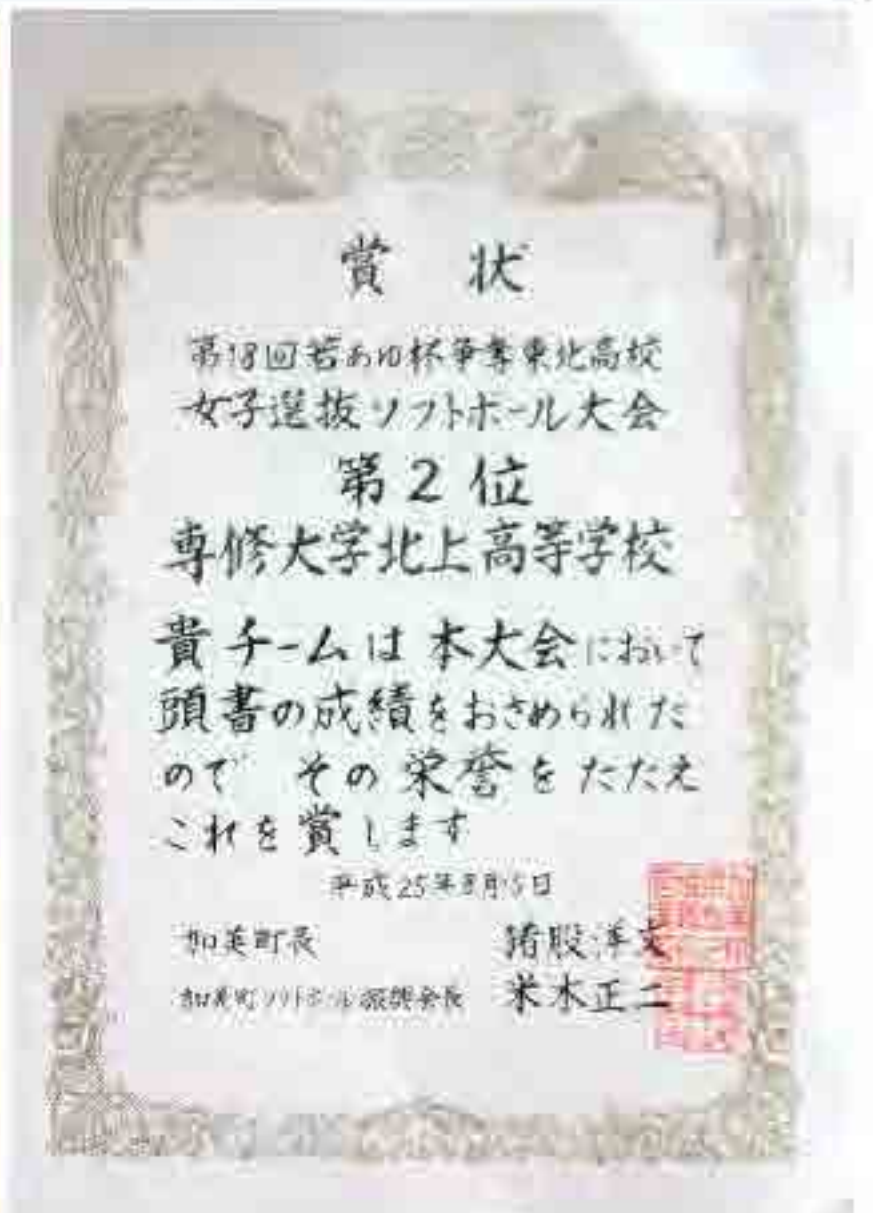 賞状
第18回若あゆ杯争奪東北高校
女子選抜ソフトボール大会
第2位
専修大学北上高等学校
貴チームは本大会において
頭書の成績をおさめられた
ので その栄誉をたたえ
これを賞します
平成25年
加美町長 猪股洋文
加美町ソフトボール振興会長 米木正二